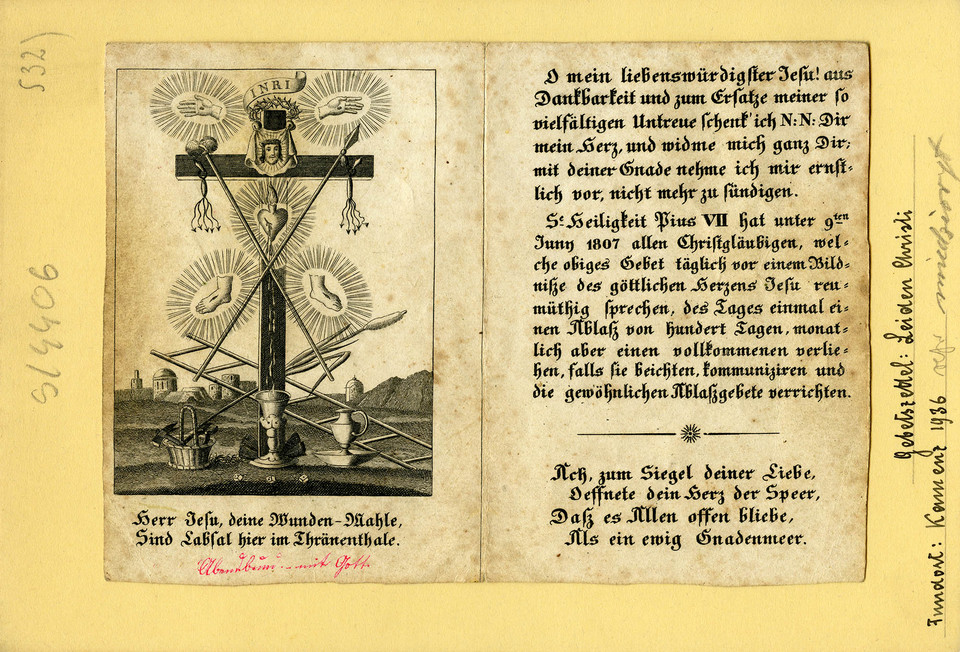 532)
S/4406
INRI
Herr Jesu, deine Wunden-Mahle,
Sind Labsal hier im Thränenthale.
mit Gott
O mein liebenswürdigster Jesu! aus
Dankbarkeit und zum Ersatze meiner so
vielfältigen Untreue schenk' ich N: N: Dir
mein Herz, und widme mich ganz Dir;
mit deiner Gnade nehme ich mir ernst=
lich vor, nicht mehr zu sündigen.
Se Heiligkeit Pius VII hat unter 9ten
Juny 1807 allen Christgläubigen, wel=
che obiges Gebet täglich vor einem Bild=
niße des göttlichen Herzens Jesu reu=
müthig sprechen, des Tages einmal ei=
nen Ablaß von hundert Tagen, monat=
lich aber einen vollkommenen verlie=
hen, falls sie beichten, kommuniziren und
die gewöhnlichen Ablaßgebete verrichten.
Ach, zum Siegel deiner Liebe,
Oeffnete dein Herz der Speer,
Daß es Allen offen bliebe,
Als ein ewig Gnadenmeer.
Gebetszettel: Leiden Christi
Fundort: Kamenz 1936